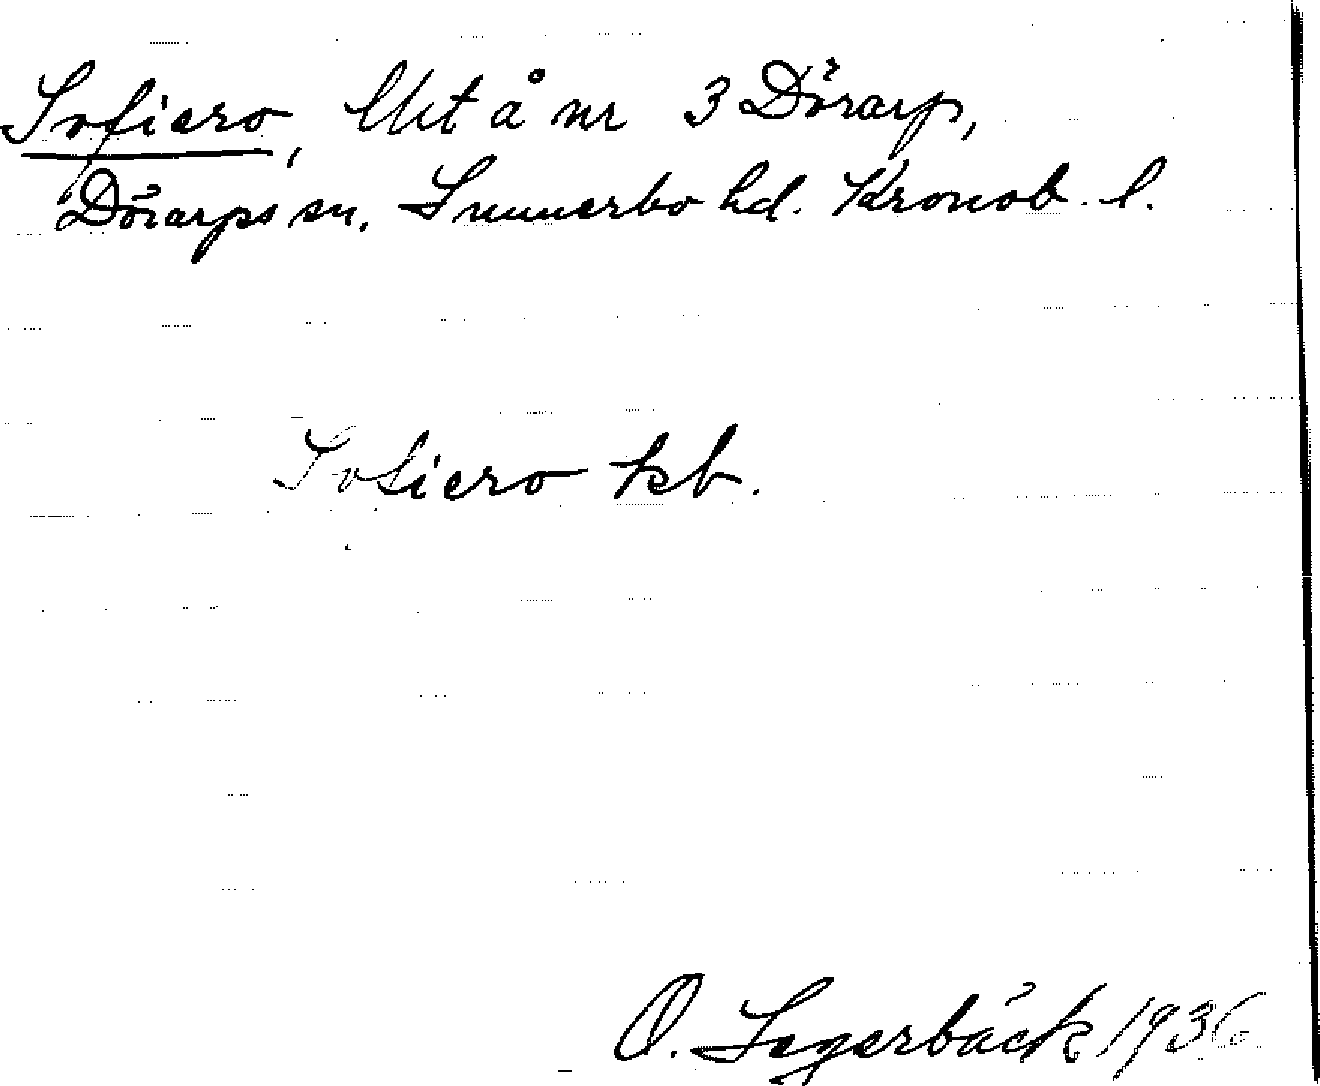 Sofiero, Utt å nr 3 Dörarp,
Dörarps sn. Sunnerbo hd. Kronob. l.
Sofiero kb.
O. Segerbäck 1936